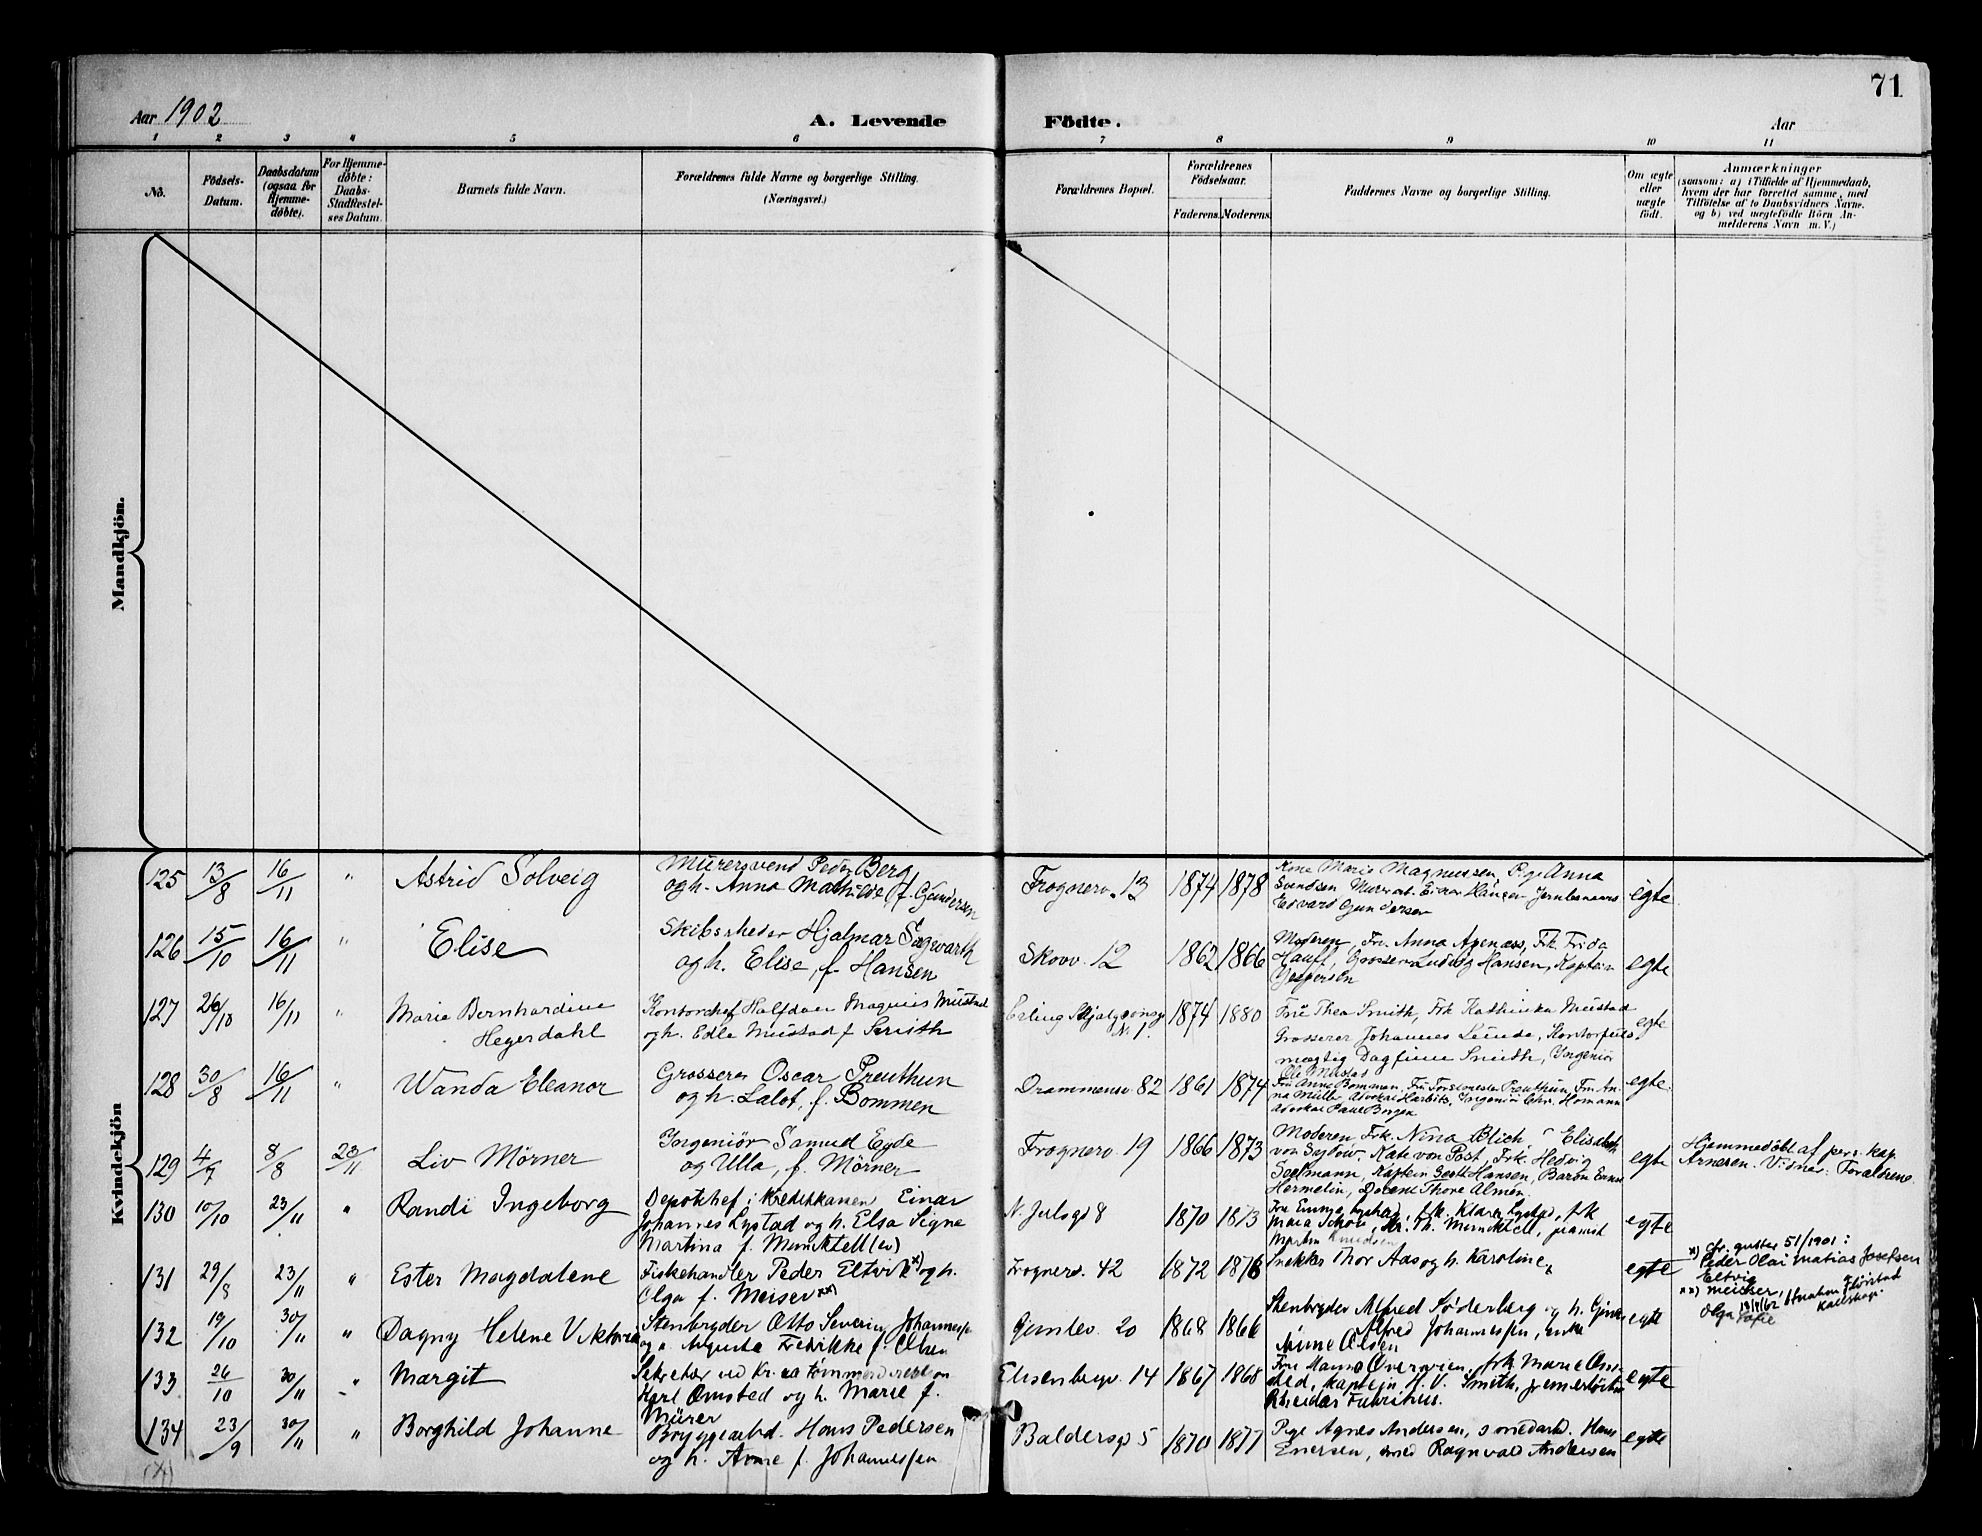 71
Aar 1902
A. Levende Födte.
Aar
1 2 3 4 5 6 7 8 9 10 11
No.
Födsels-
Datum.
Daabsdatum
(ogsaa for
Hjemme-
døbte).
For Hjemme-
døbte:
Daabs-
Stadfæstel-
ses Datum.
Barnets fulde Navn.
Forældrenes fulde Navne og borgerlige Stilling.
(Næringsvei.)
Forældrenes Bopæl.
Forældrenes
Fødselsaar.
Faderens. Moderens.
Faddernes Navne og borgerlige Stilling.
Om ægte
eller
uægte
født.
Anmærkninger
(saasom: a) i Tilfælde af Hjemmedaab,
hvem der har forrettet samme, med
Tilføielse af to Daabsvidners Navne,
og b) ved uægtefødte Börn An-
melderens Navn m. V.)
Mandkjön.
Kvindekjön
125 13/8 16/11 " Astrid Solveig
Murersvend Peder Berg
og h. Anna Mathilde f. Gundersen
Frognerv. 13 1874 1878
Kone Marie Magnussen, Pige Anna
Svendsen, Hansen
Edvard Gundersen
egte
126 15/10 16/11 " Elise
Skibsrheder Hjalmar
og h. Elise, f. Hansen
Skovv. 12 1862 1866
Moderen, Fru Anna Agenæss, Frk Frida
Grosserer Ludvig Hansen, Kaptein
Jespersen
egte
127 26/10 16/11 " Marie Bernhardine
Hegerdahl
Kontorchef Halfdan Magnus Mustad
og h. Edle Mustad f Smith
Erling Skjalgsonsg
No 1.
1874 1880
Fru Thea Smith, Frk Kathinka Mustad
Grosserer Johannes Lunde, Kontorfuld-
mægtig Dagfinn Smith, Ingeniør
Ole Mustad
egte
128 30/8 16/11 " Wanda Eleanor
Grosserer Oscar Preuthun
og h. Lalot, f. Bommen
Drammensv 82 1861 1874
Fru Anne Bommen, Fru Preuthun, Fru An-
na Müller, Advokat Harbitz, Ingeniør Chr. Homann
Advokat Paul Borgen
egte.
129 4/7 8/8 23/11 Liv Mörner
Ingeniör Samuel Eyde
og Ulla, f. Mörner
Frognerv 19 1866 1873
Moderen, Frk. Nina Blich, " Elisabeth
von Kate von Post, Frk. Hedvig
Kaptein Scott Hansen, Baron
Hermelin, Docent Thore Almén.
egte
Hjemmedöbt af pers. kap.
Arnesen. Vidner: Forældrene.
130 10/10 23/11 " Randi Ingeborg
Depotchef i Kreditkassen Einar
Johannes Lystad og h. Elsa Signe
Martina f. Muncktell (ev)
N. Julsgd 8 1870 1873
Fru Emma Lystad, frk. Klara Lystad, frk
Maria Schou, Hr. Th. Muncktell, pianist
Martin Knudsen
egte
131 29/8 23/11 " Ester Magdalene
Fiskehandler Peder Eltvik x) og h.
Olga f. Meiser xx)
Frognerv. 42 1872 1876
Snekker Thor Aas og h. Karoline
egte
x) cfr. 51/1901:
Peder Olai Matias Josefsen
Eltvig
xx) Meicher,
Olga Sofie
132 19/10 30/11 " Dagny Helene Viktoria
Stenbryder Otto Severin Johannesse
og h. Augusta Fredrikke f. Olsen
Gimlev. 20 1868 1866
Stenbryder Alfred Söderberg og h. Gina
Alfred Johannessen, enke
Anne Olsen
egte
133 26/10 30/11 " Margit
Sekretær ved Kr.ia tømmerdirektion
Karl Omsted og h. Marie f.
Mürer
Elisenbergv. 14 1867 1868
Fru Hanna frk Marie Om-
sted, kaptejn H. V. Smith, premierløitn
Kreidar Fabritius.
egte
134 23/9 30/11 " Borghild Johanne
Bryggearbd. Hans Pedersen
og h. Anne f. Johannessen
Baldersgd 5 1870 1877
Pige Agnes Andersen, smedarb. Hans
Enersen, smed Ragnvald Andersen
egte